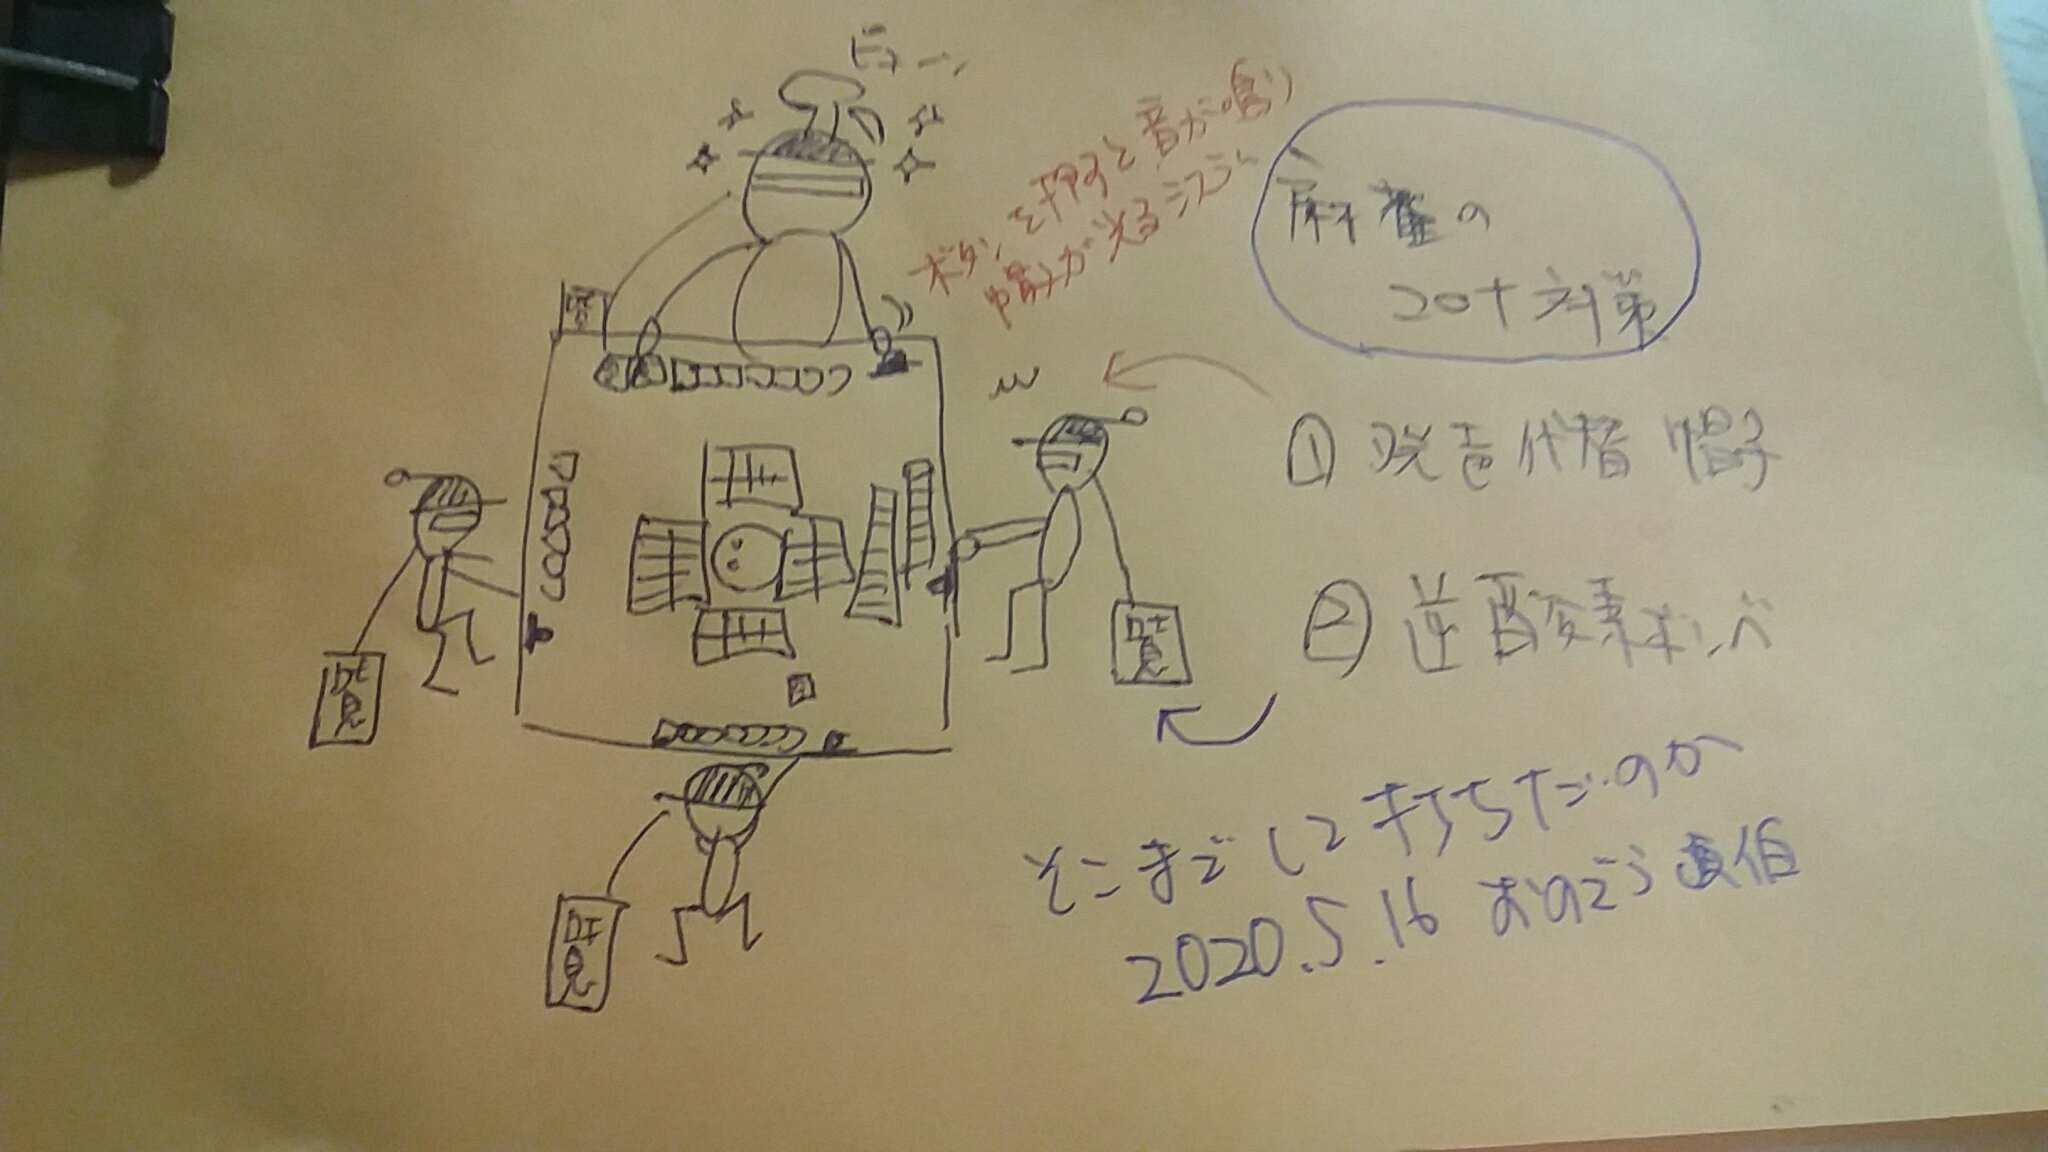 ピューン
ボタンを押すと音が鳴り
帽子が光るシステム
麻雀の
コロナ対策
① 発声代替帽子
② 逆酸素ボンベ
そこまでして打ちたいのか
2020.5.16 おのごう直伯